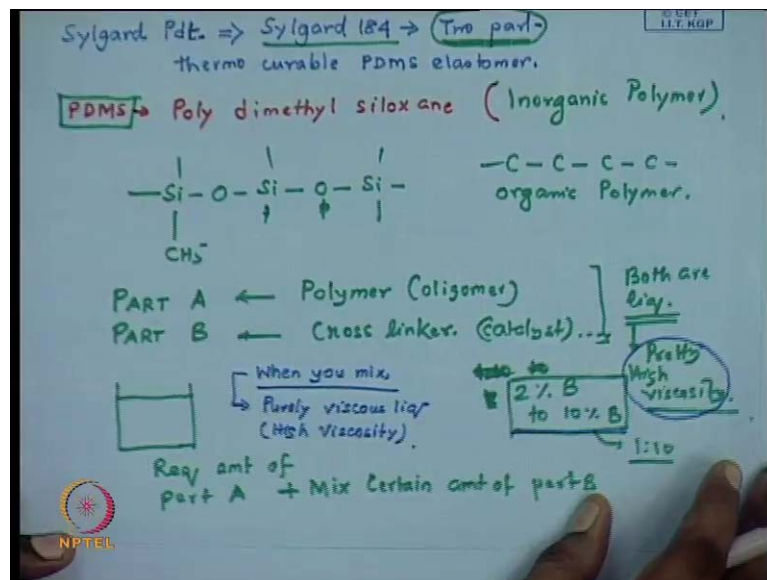 Sylgard Pdt. => Sylgard 184 → Two part-
thermo curable PDMS elastomer.
I.I.T. KGP
PDMS → Poly dimethyl siloxane (Inorganic Polymer).
— Si — O — Si — O — Si —
CH3
— C — C — C — C —
organic Polymer.
PART A ← Polymer (oligomer)
PART B ← Cross linker. (catalyst)...
Both are
liq.
Pretty
High
viscosity.
When you mix,
→ Purely viscous liq
(High Viscosity).
2 % B
to 10 % B
1:10
Req amt of
part A + Mix Certain amt of part B
NPTEL